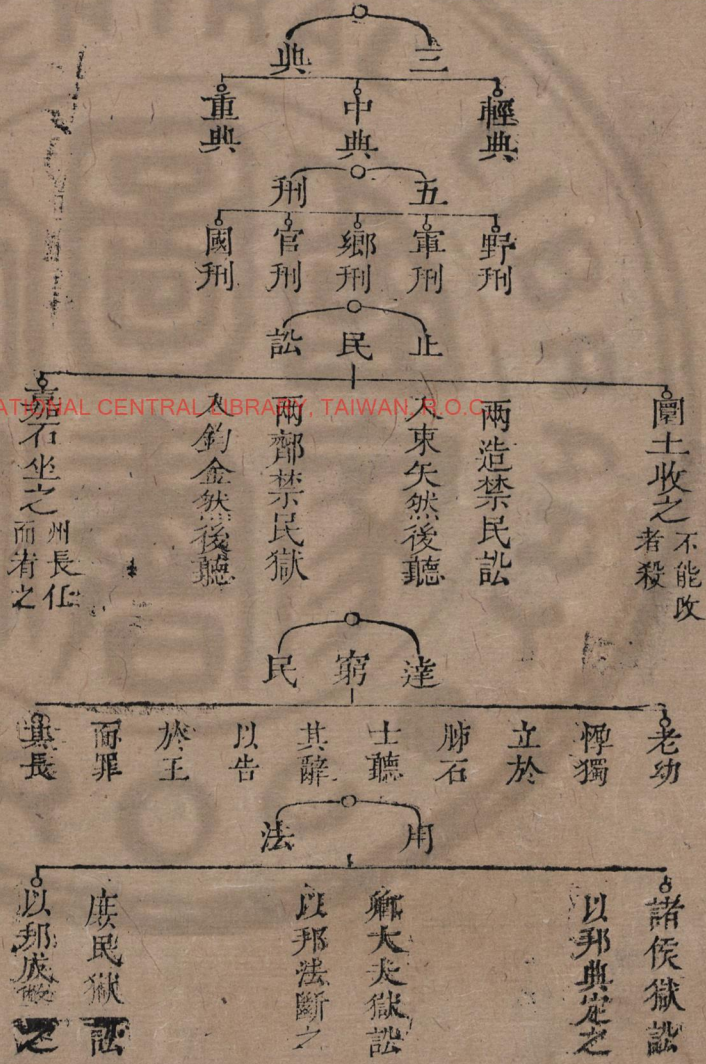 三典
輕典
中典
重典
五刑
野刑
軍刑
鄉刑
官刑
國刑
止民訟
圜土收之
不能改
者殺
兩造禁民訟
入束矢然後聽
兩劑禁民獄
入鈞金然後聽
嘉石坐之
州長任
而宥之
達窮民
老幼
惸獨
立於
肺石
士聽
其辭
以告
於王
而罪
其長
用法
諸侯獄訟
以邦典定之
卿大夫獄訟
以邦法斷之
庶民獄訟
以邦成
之
NATIONAL CENTRAL LIBRARY, TAIWAN, R.O.C.